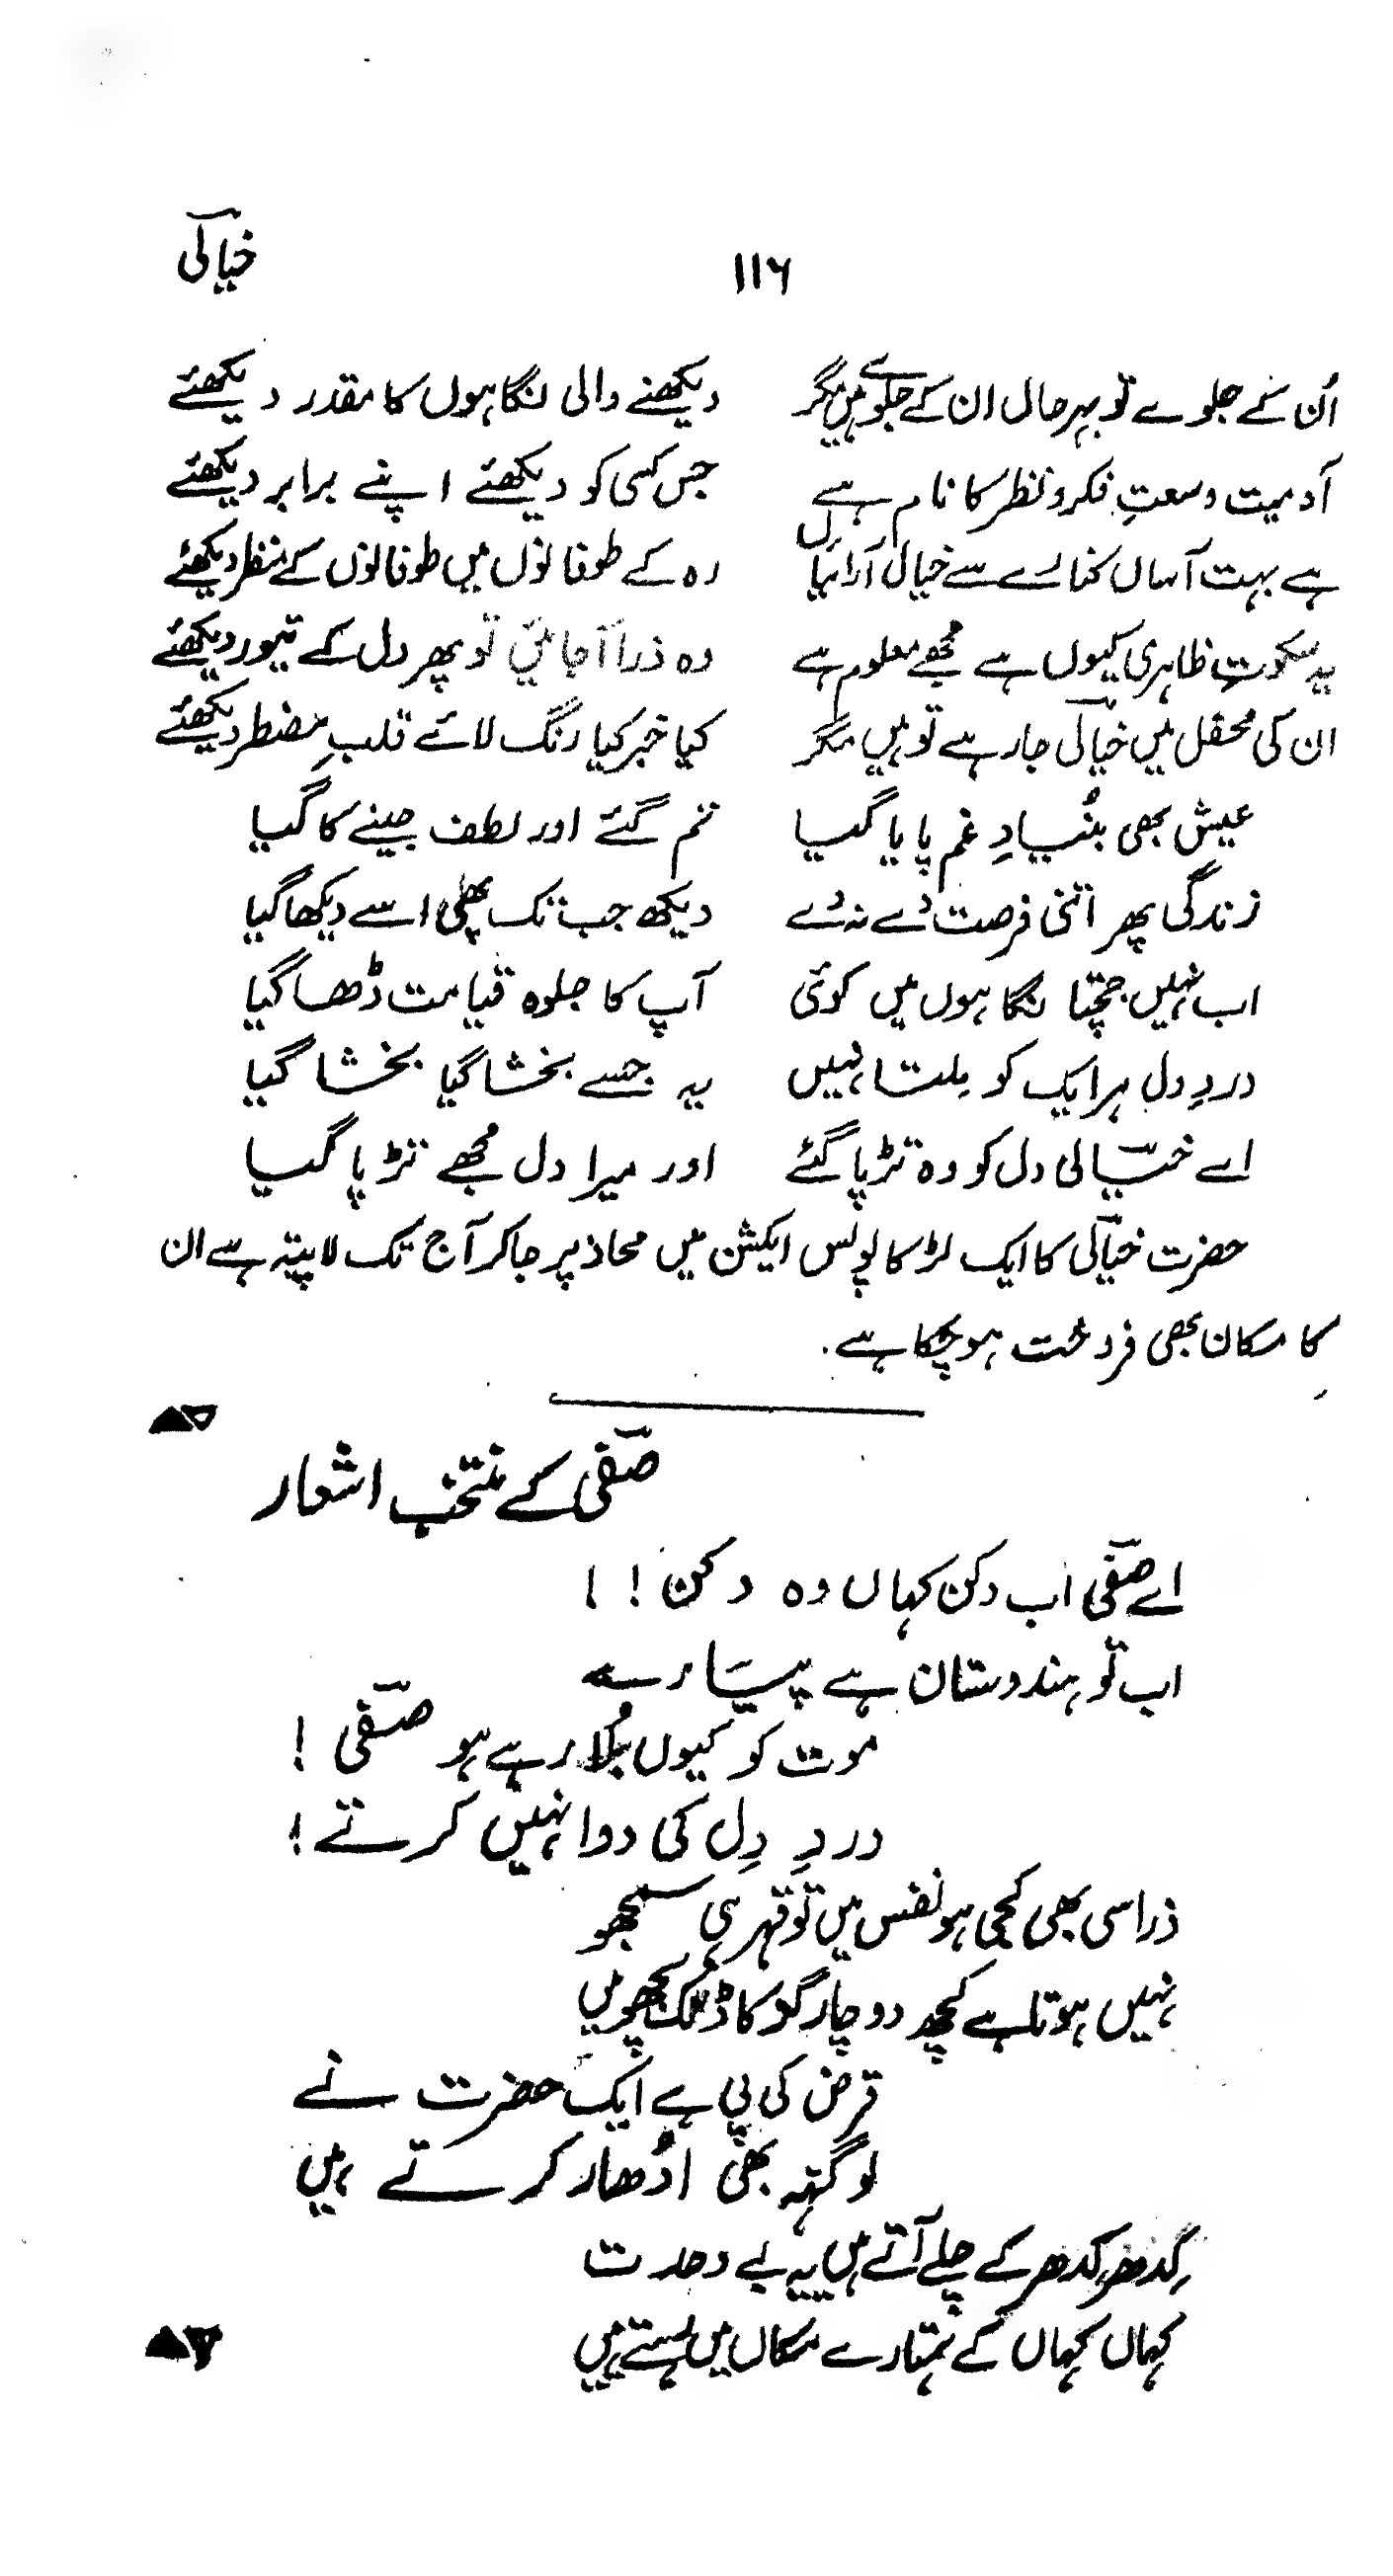 خیالی
۱۱۶
اُن کے جلوے تو بہر حال ان کے جلوے ہیں مگر دیکھنے والی نگاہوں کا مقدر دیکھئے
آدمیت وسعتِ فکر و نظر کا نام ہے جس کسی کو دیکھئے اپنے برابر دیکھئے
ہے بہت آساں کنارے سے خیال آرائیاں رہ کے طوفانوں میں طوفانوں کے منظر دیکھئے
یہ سکوتِ ظاہری کیوں ہے مجھے معلوم ہے وہ ذرا آ جائیں تو پھر دل کے تیور دیکھئے
ان کی محفل میں خیالی جا رہے تو ہیں مگر کیا خبر کیا رنگ لائے قلبِ مضطر دیکھئے
عیش بھی بنُیادِ غم پایا گیا تم گئے اور لطف جینے کا گیا
زندگی پھر اتنی فرصت دے نہ دے دیکھ جب تک بھی اسے دیکھا گیا
اب نہیں جچتا نگاہوں میں کوئی آپ کا جلوہ قیامت ڈھا گیا
دردِ دل ہر ایک کو مِلتا نہیں یہ جسے بخشا گیا بخشا گیا
اے خیالی دل کو وہ تڑپا گئے اور میرا دل مجھے تڑپا گیا
حضرت خیالی کا ایک لڑکا پولس ایکشن میں محاذ پر جا کر آج تک لاپتہ ہے ان
کا مکان بھی فروخت ہو چکا ہے۔
صفی کے منتخب اشعار
اے صفی اب دکن کہاں وہ دکن !!
اب تو ہندوستان ہے پیارے
موت کو کیوں بُلا رہے ہو صفی !
دردِ دِل کی دوا نہیں کرتے !
ذرا سی بھی کجی ہو نفس میں تو قہر ہی سمجھو
نہیں ہوتا ہے کچھ دو چار گز کا ڈنک بچھو میں
قرض کی پی ہے ایک حضرت نے
لو گنہ بھی ادُھار کرتے ہیں
کِدھر کِدھر کے چلے آتے ہیں یہ بے وحدت
کہاں کہاں کے تمہارے مکاں میں بستے ہیں